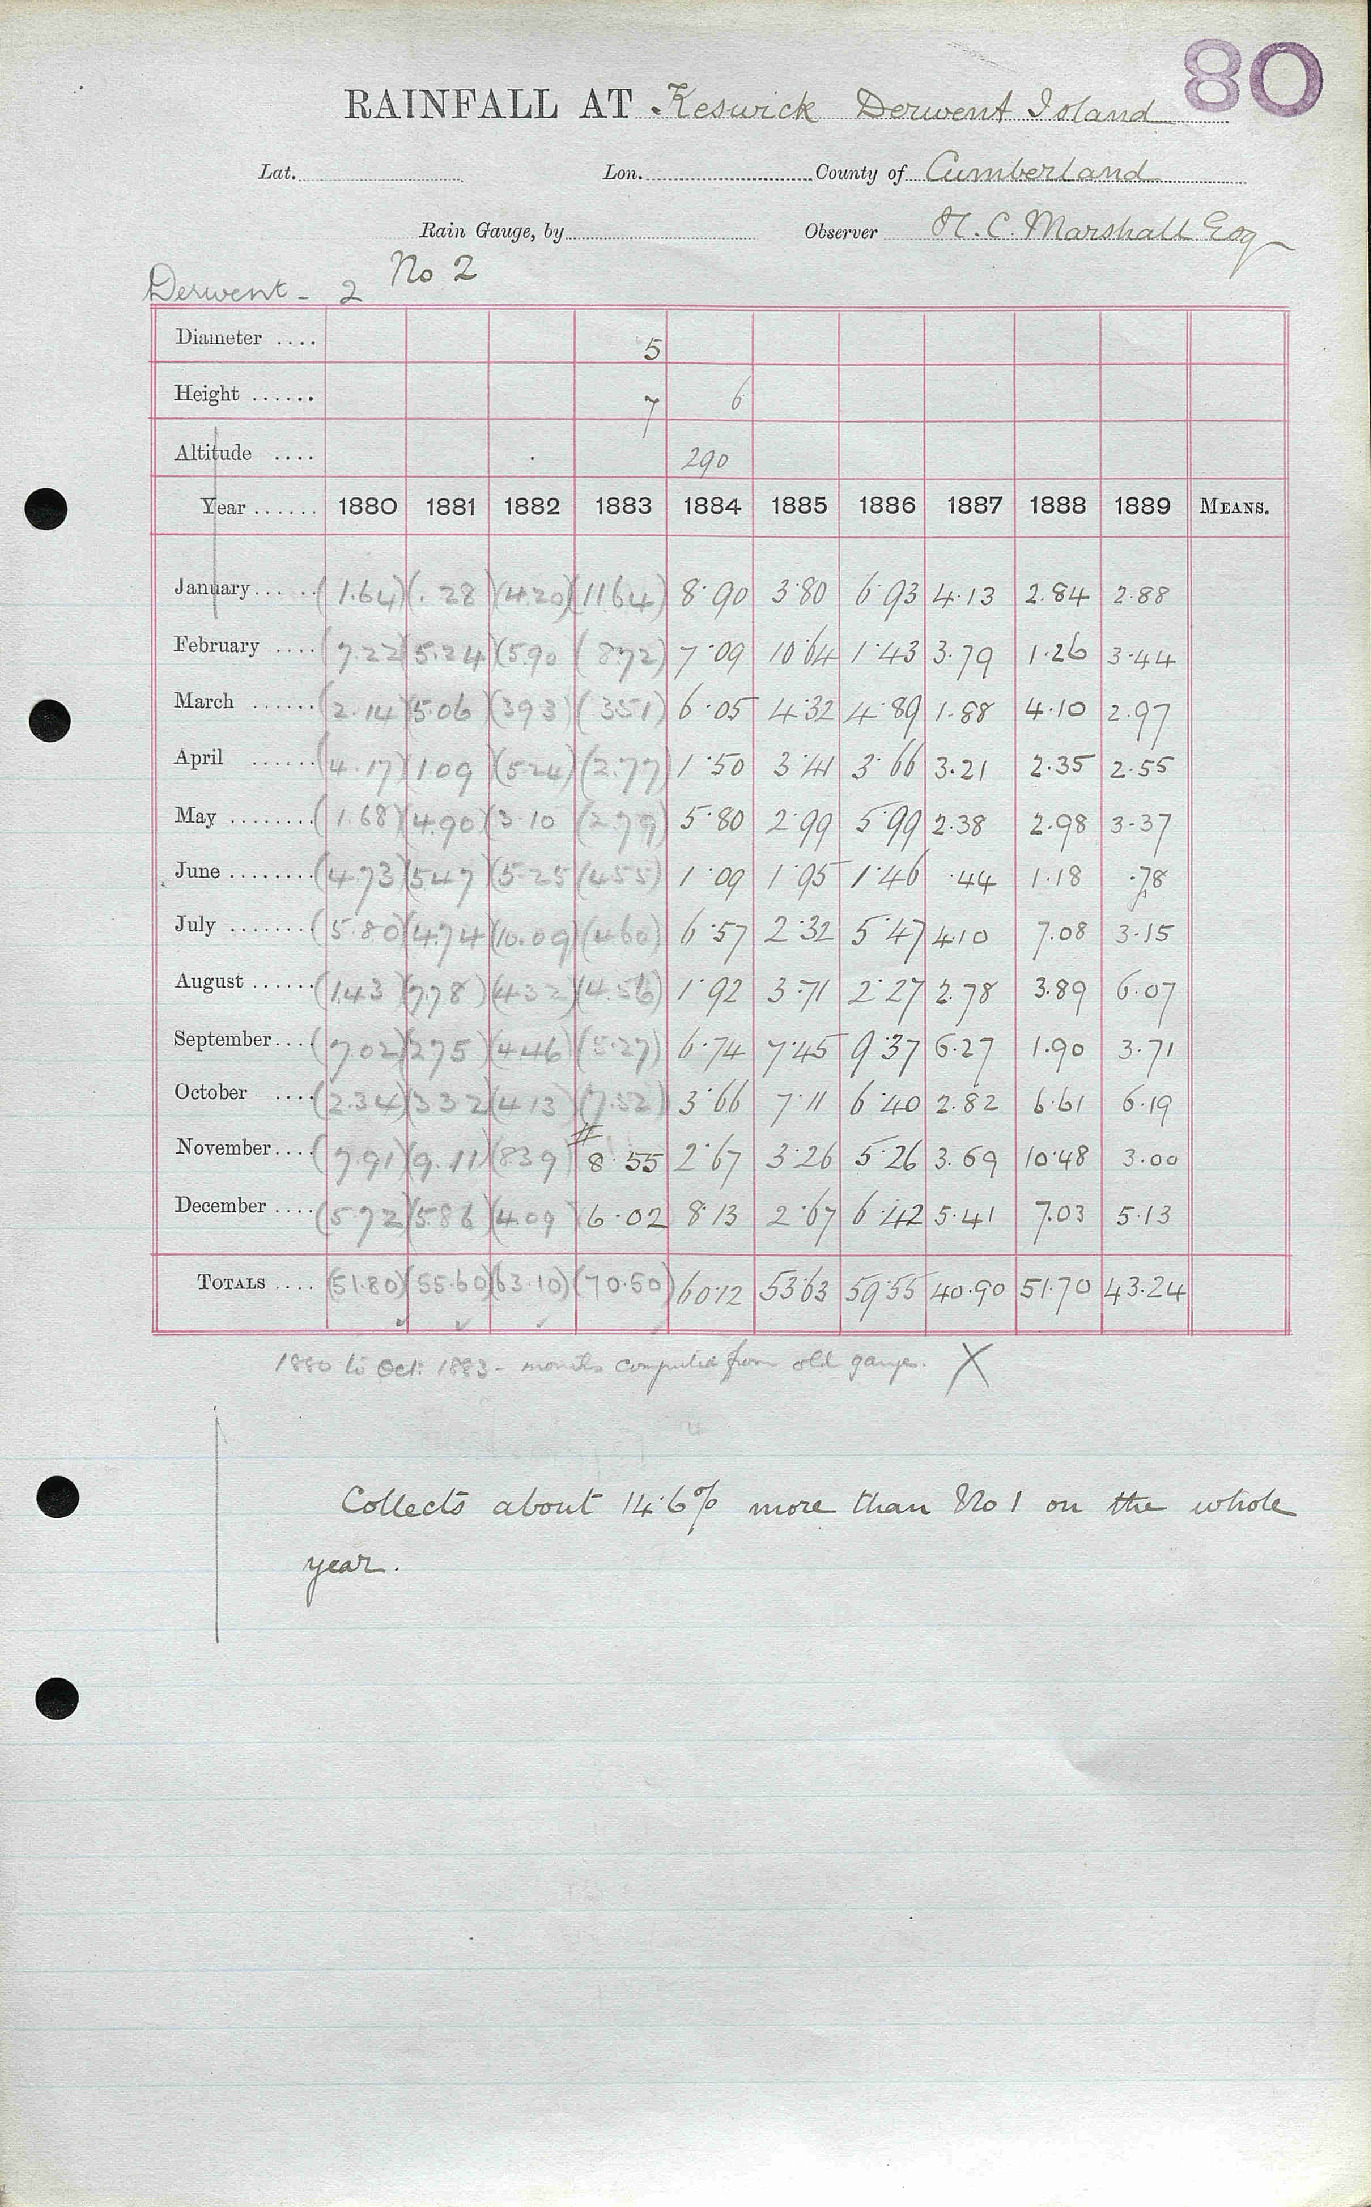 80
RAINFALL AT Keswick Derwent Island
Lat. Lon. County of Cumberland
Rain Gauge, by Observer H. C. Marshall Esq
Derwent - 2 No 2
Diameter .... 5
Height ...... 7 6
Altitude .... 290
Year ...... 1880 1881 1882 1883 1884 1885 1886 1887 1888 1889 MEANS.
January ...... (1.64) (.28) (4.20) (11.64) 8.90 3.80 6.93 4.13 2.84 2.88
February .... (7.22) 5.24 (5.90 (8.72) 7.09 10.64 1.43 3.79 1.26 3.44
March ...... (2.14) 5.06 (3.93) (3.51) 6.05 4.32 4.89 1.88 4.10 2.97
April ...... (4.17) (1.09 (5.24) (2.77) 1.50 3.41 3.66 3.21 2.35 2.55
May ........ (1.68) (4.90) (3.10 (2.79) 5.80 2.99 5.99 2.38 2.98 3.37
June ........ (4.73) (5.47 (5.25 (4.55) 1.09 1.95 1.46 .44 1.18 .78
July ........ (5.80) (4.74 (10.09) (4.60) 6.57 2.32 5.47 4.10 7.08 3.15
August ...... (1.43) (7.78) (4.32) (4.56) 1.92 3.71 2.27 2.78 3.89 6.07
September .... (7.02) (2.75) (4.46) (5.27) 6.74 7.45 9.37 6.27 1.90 3.71
October .... (2.34) (3.32) (4.13) (7.52) 3.66 7.11 6.40 2.82 6.61 6.19
November .... (7.91) (9.11) (8.39) # 8.55 2.67 3.26 5.26 3.69 10.48 3.00
December .... (5.72) (5.86) (4.09) 6.02 8.13 2.67 6.42 5.41 7.03 5.13
TOTALS .... (51.80) (55.60) (63.10) (70.50) 60.12 53.63 59.55 40.90 51.70 43.24
1880 to Oct: 1883 - months computed from old gauge. X
Collects about 14.6% more than No 1 on the whole
year.